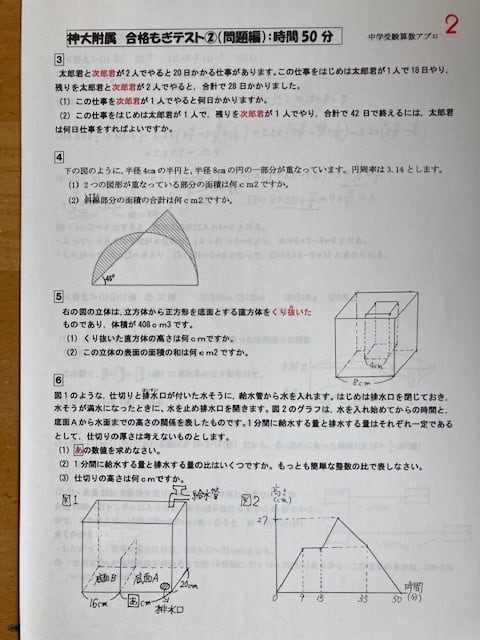 神大附属 合格もぎテスト②(問題編):時間50分
中学受験算数アプロ
2
3
太郎君と次郎君が2人でやると20日かかる仕事があります。この仕事をはじめは太郎君が1人で18日やり、
残りを太郎君と次郎君が2人でやると、合計で28日かかりました。
(1) この仕事を次郎君が1人でやると何日かかりますか。
(2) この仕事をはじめは太郎君が1人で、残りを次郎君が1人でやり、合計42日で終えるには、太郎君
は何日仕事をすればよいですか。
4
下の図のように,半径4cmの半円と,半径8cmの円の一部分が重なっています。円周率は3.14とします。
(1) 2つの図形が重なっている部分の面積は何cm2ですか。
(2) 斜線部分の面積の合計は何cm2ですか。
45°
5
右の図の立体は、立方体から正方形を底面とする直方体をくり抜いた
ものであり、体積が408cm3です。
(1) くり抜いた直方体の高さは何cmですか。
(2) この立体の表面の面積の和は何cm2ですか。
4cm
8cm
6
図1のような、仕切りと排水口が付いた水そうに、給水管から水を入れます。はじめは排水口を閉じておき、
水そうが満水になったときに、水を止め排水口を開きます。図2のグラフは、水を入れ始めてからの時間と、
底面Aから水面までの高さの関係を表したものです。1分間に給水する量と排水する量はそれぞれ一定である
として、仕切りの厚さは考えないものとします。
(1) あの数値を求めなさい。
(2) 1分間に給水する量と排水する量の比はいくつですか。もっとも簡単な整数の比で表しなさい。
(3) 仕切りの高さは何cmですか。
図1
給水管
底面B
底面A
20cm
16cm
あcm
排水口
図2
高さ
(cm)
27
0
9
15
35
50
時間
(分)